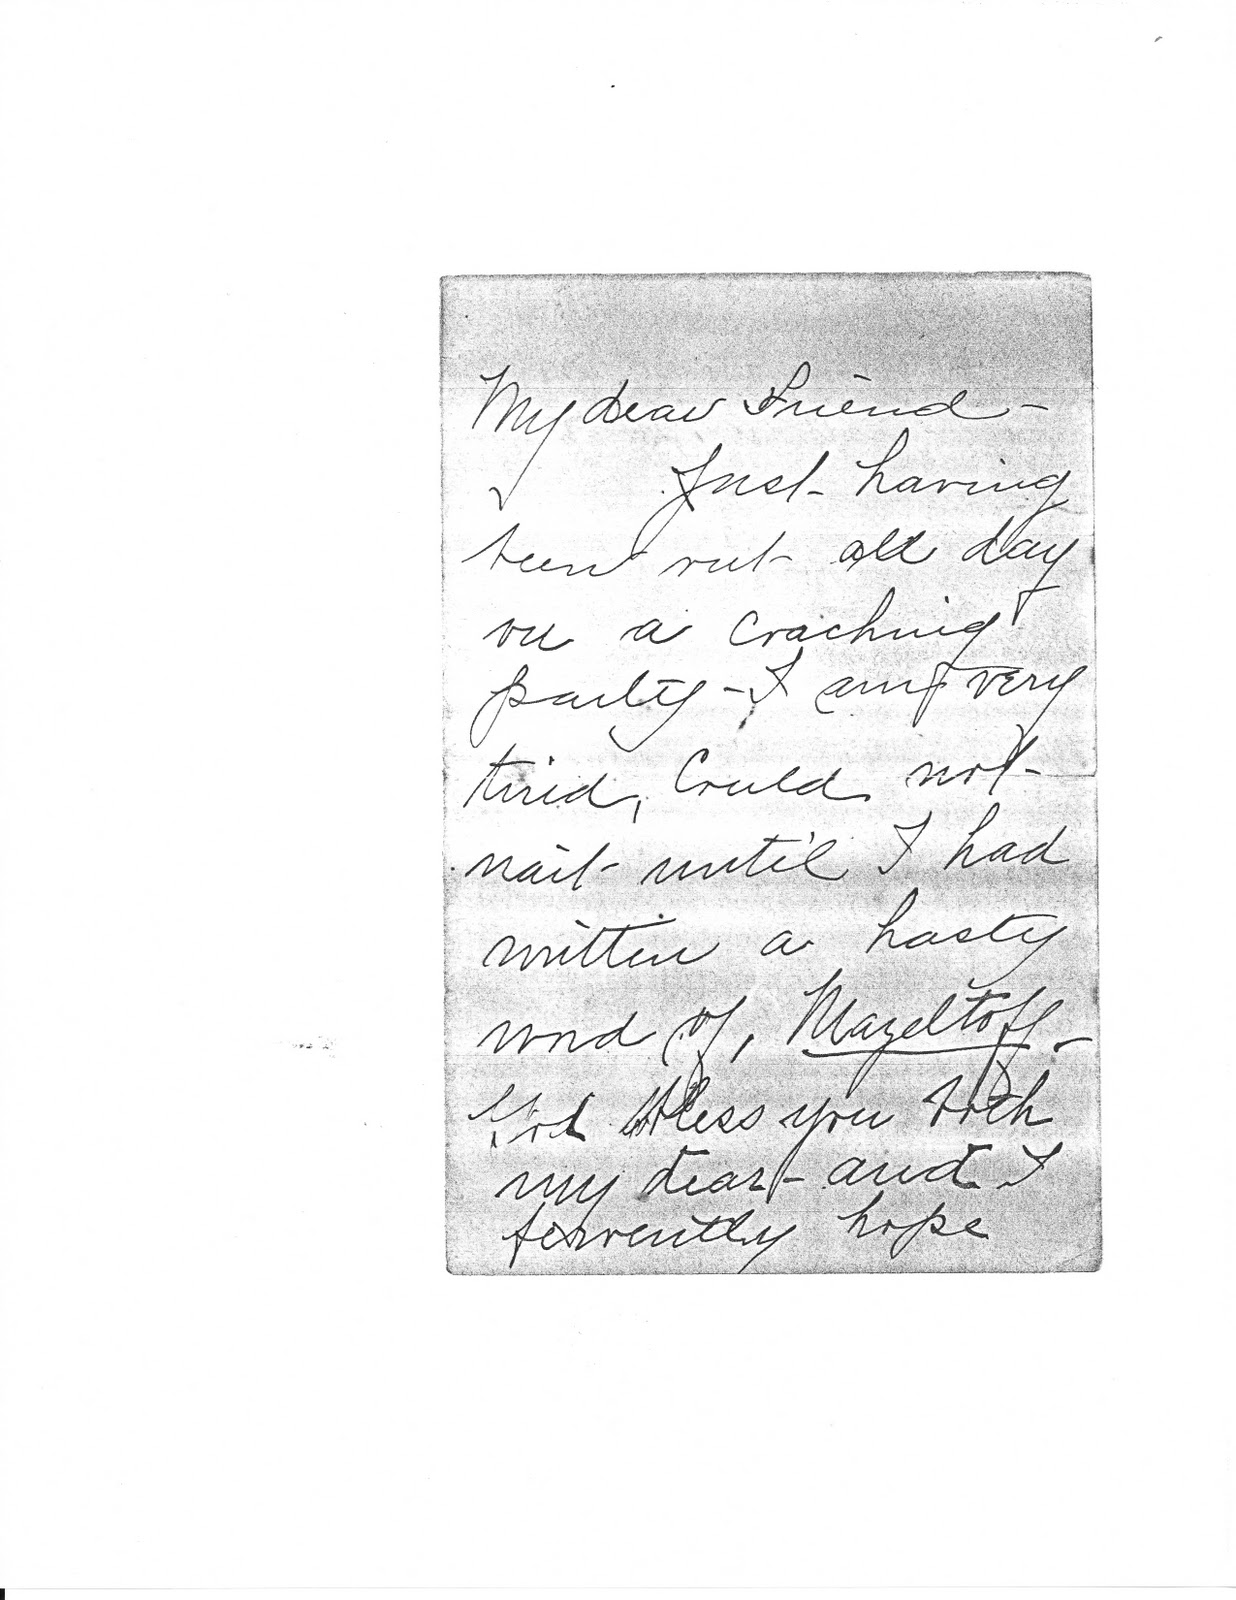 My dear Friend -
Just - having
been out - all day
on a coaching
party - I am very
tired, Could not -
wait - until I had
written a hasty
word of, Mazeltoff -
God bless you both
my dear - and I
fervently hope